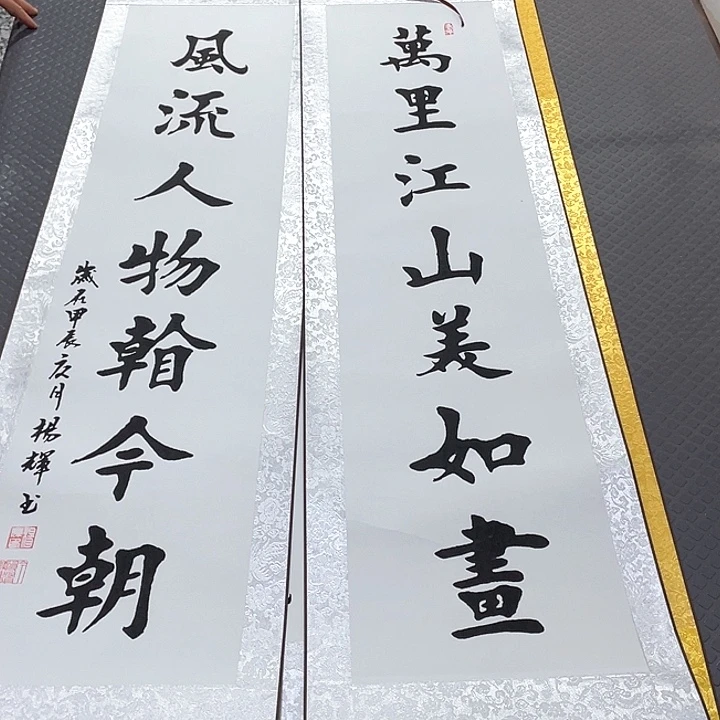 萬里江山美如畫
風流人物今朝
歲在甲辰夏月楊輝书